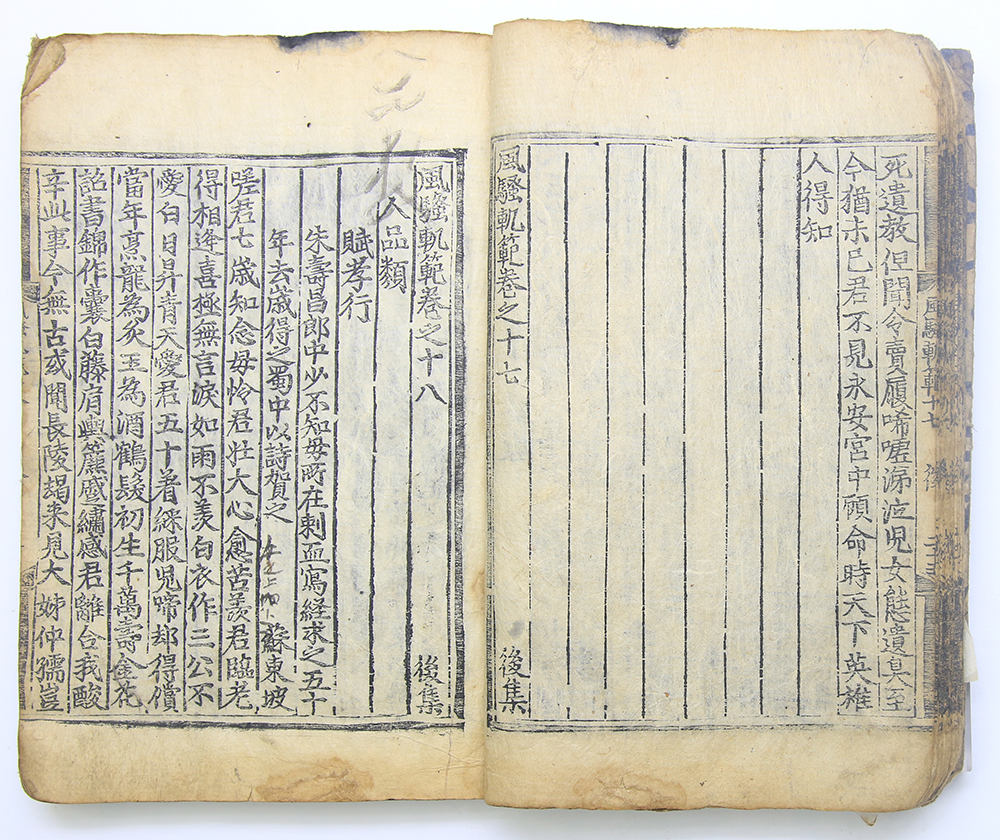 死遺教但聞令賣履唏噓涕泣児女態遺臭至
今猶未已君不見永安宮中顧命時天下英雄
人得知
風騷軌範卷之十七 後集
風騷軌範卷之十八 後集
人品類
賦孝行
朱壽昌郎中少不知母所在刺血寫経求之五十
年去歲得之蜀中以詩賀之 蘇東坡
嗟君七歲知念母怜君壯大心愈苦羨君臨老
得相逢喜極無言淚如雨不羡白衣作三公不
愛白日昇青天愛君五十着綵服児啼却得償
當年烹龍為炙玉為酒鶴髮初生千萬壽金花
詔書錦作囊白藤肩輿簾蹙繡感君離合我酸
辛此事今無古或聞長陵朅来見大姊仲孺豈